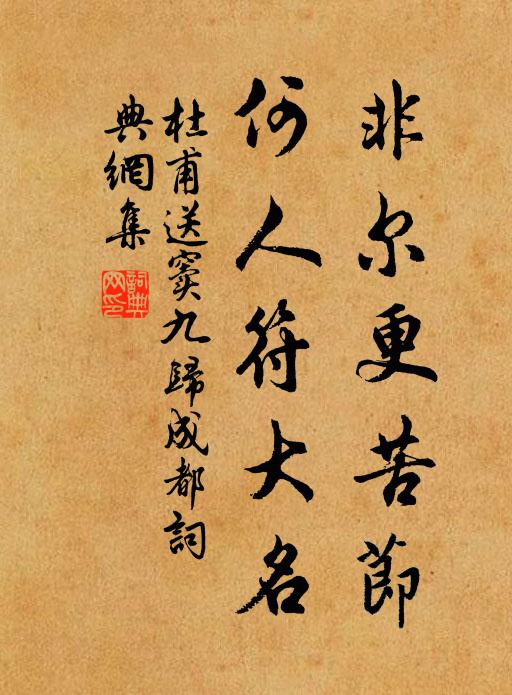 非尔更苦節
何人符大名
杜甫送窦九歸成都詞
典網集
詞典
网印